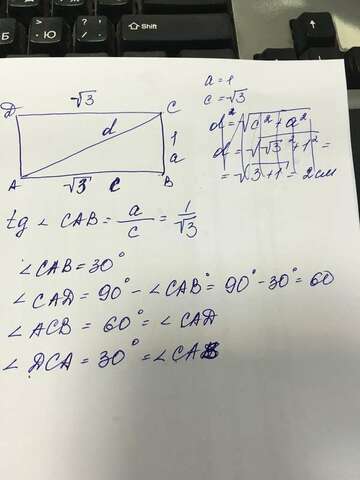 Shift
√3
D
C
d
1
a
A
√3
c
B
a = 1
c = √3
d² = √c² + a²
d = √√3² + 1² =
= √3 + 1 = 2 см
tg ∠ CAB = a/c = 1/√3
∠ CAB = 30°
∠ CAD = 90° - ∠ CAB° = 90° - 30° = 60
∠ ACB = 60° = ∠ CAD
∠ DCA = 30° = ∠ CAB